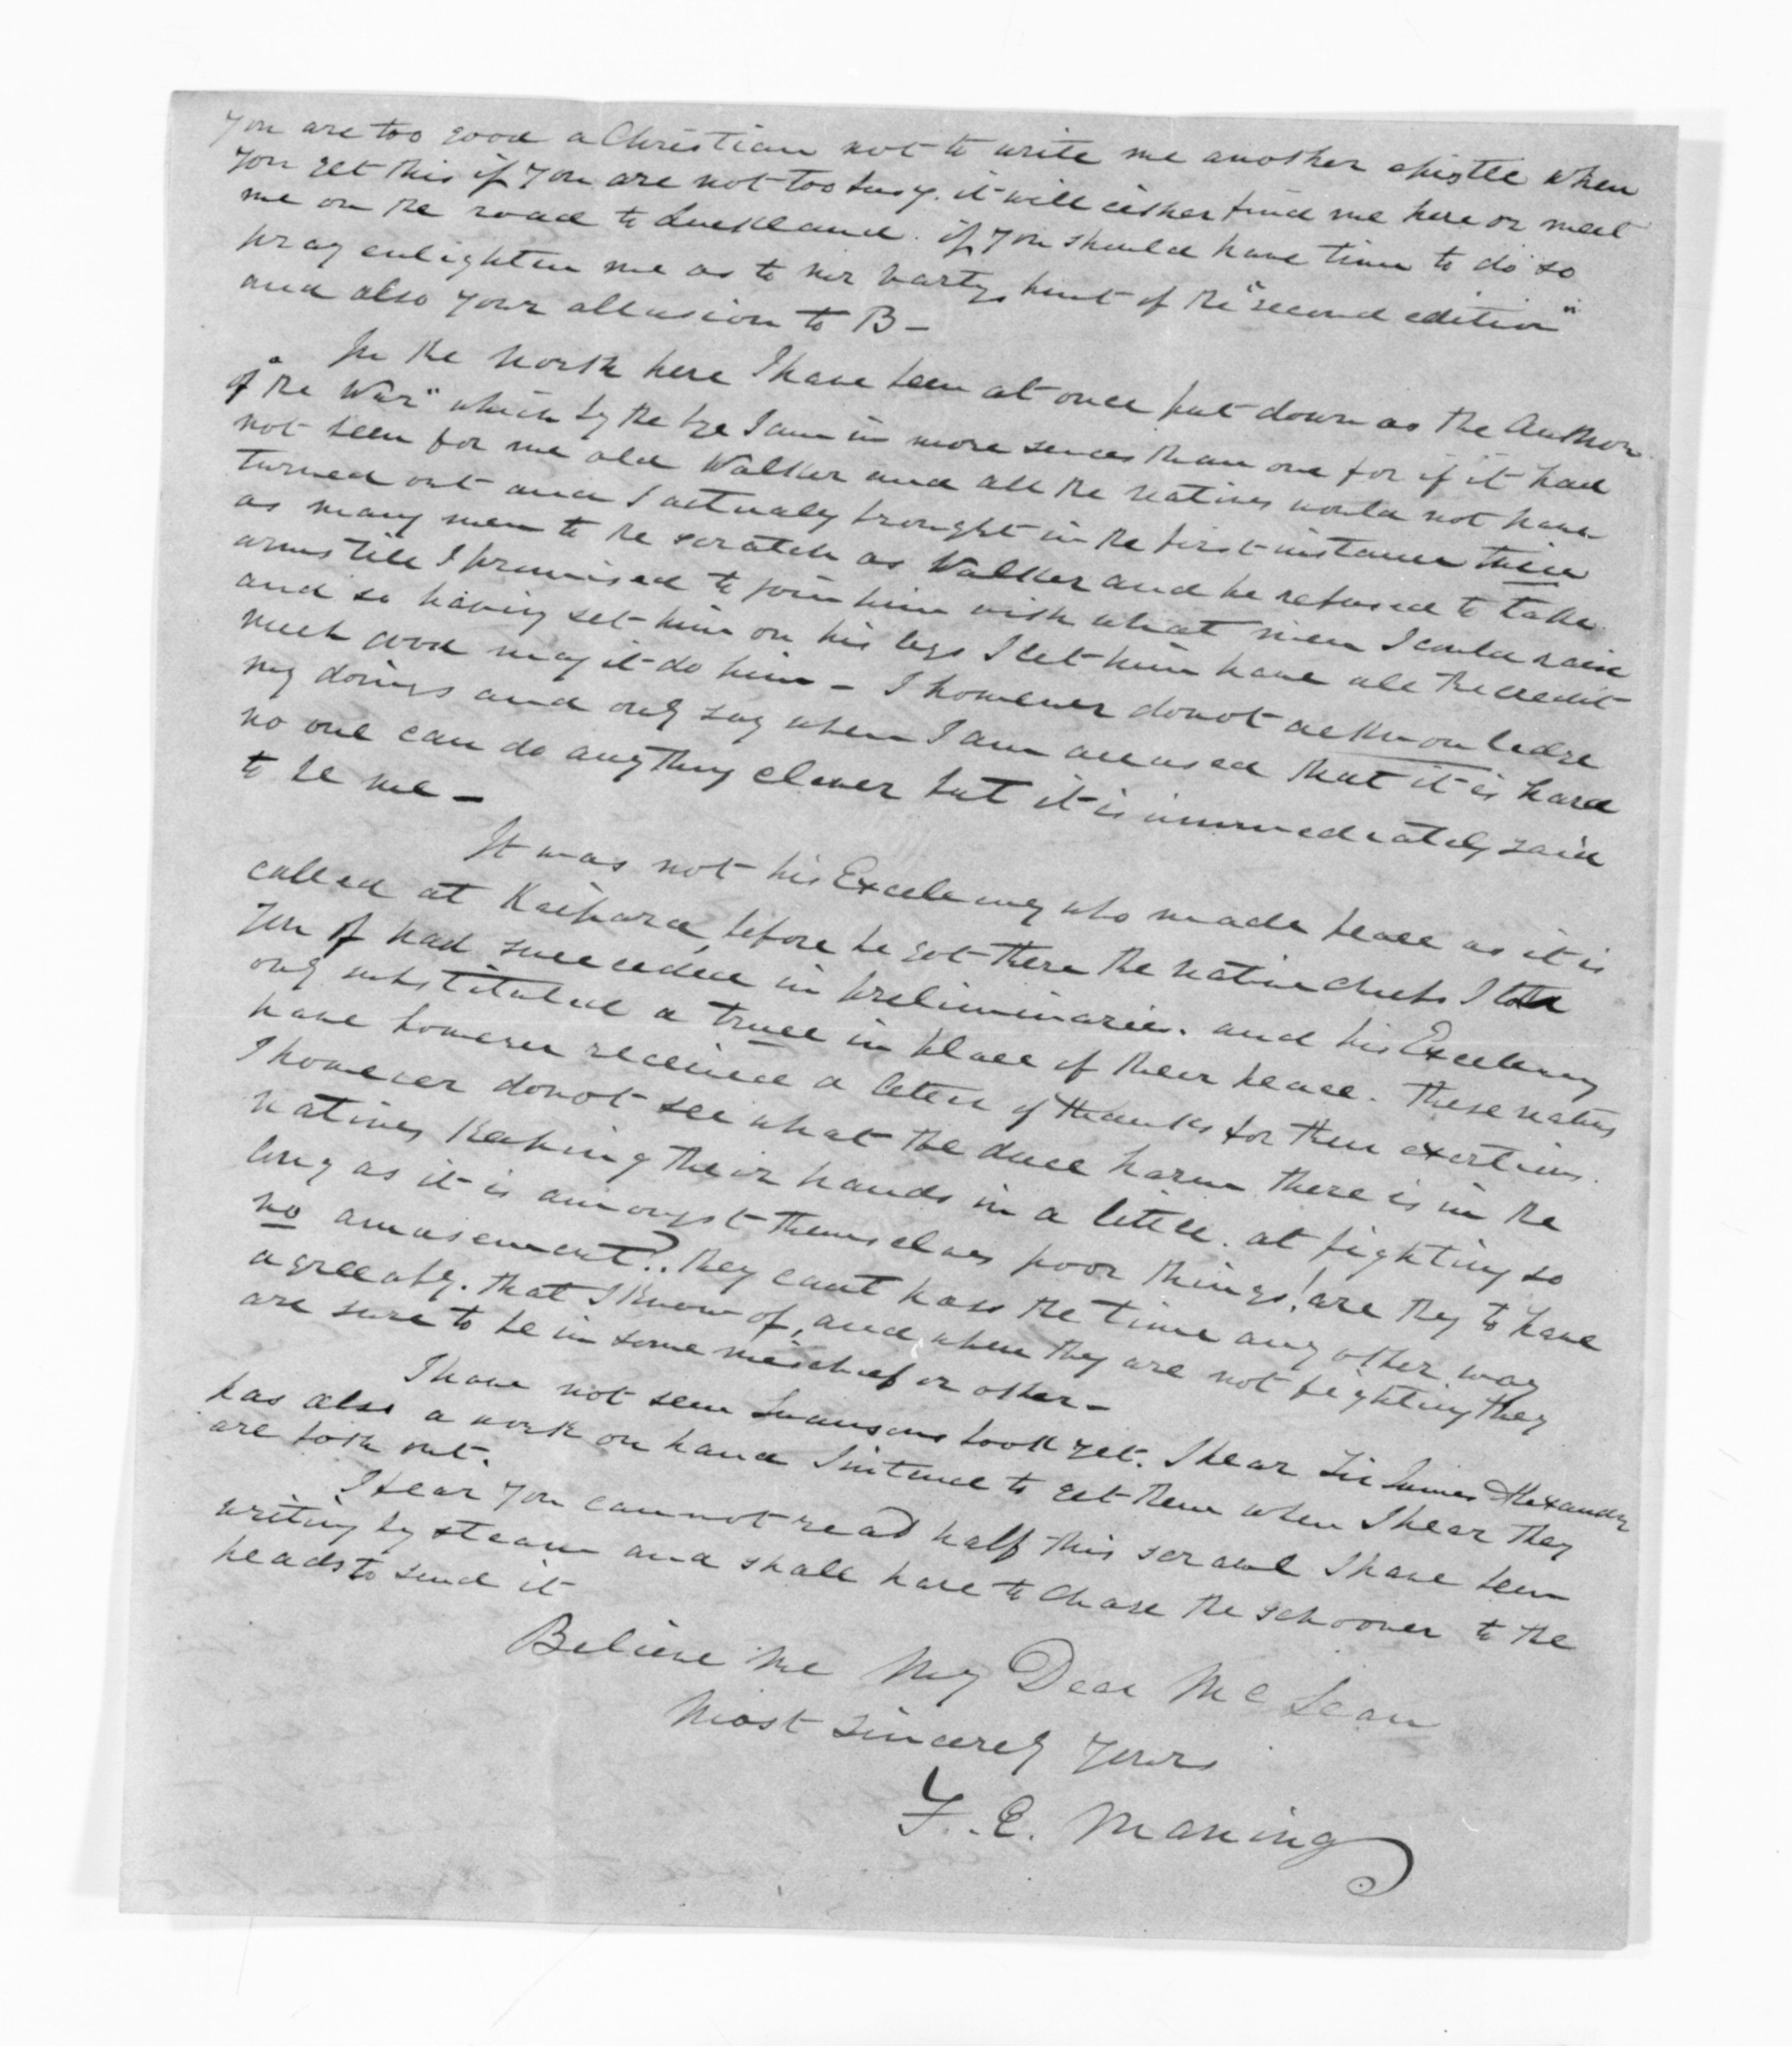 You are too good a Christian not to write me another epistle when
you get this if you are not too busy. it will either find me here or meet
me on the road to Auckland. if you should have time to do so
pray enlighten me as to her party hint of the "second edition"
and also your allusion to B—
In the North here I have been at once put down as the Author
of "the War" which by the bye I am in more sences than one for if it had
not been for me old Walker and all the natives would not have
turned out and I actualy brought in the first instance twice
as many men to the scratch as Walker and he refused to take
arms till I promised to join him with what men I could raise
and so having set him on his legs I let him have all the credit
much good may it do him — I however donot acknowledge
my doings and only say when I am accused that it is hard
no one can do anything clever but it is immediately said
to be me —
It was not his Excelency who made peace as it is
called at Kaipara, before he got there the native chiefs I told
you of had succeeded in preliminaries. and his Excelency
only substituted a truce in place of their peace. These natives
have however received a letter of thanks for their exertions.
I however donot see what the duce harm there is in the
natives keeping their hands in a little. at fighting so
long as it is amongst themselves poor things! are they to have
no amusement?. they cant pass the time any other way
agreeably. that I know of, and when they are not fighting they
are sure to be in some meischief or other —
I have not seen Swansons book yet. I hear Sir James Alexander
has also a work on hand I intend to get them when I hear they
are both out.
I fear you cannot read half this scrawl I have been
writing by steam and shall have to chase the schooner to the
heads to send it
Believe me My Dear McLean
Most Sincerely Yours
F. E. Maning